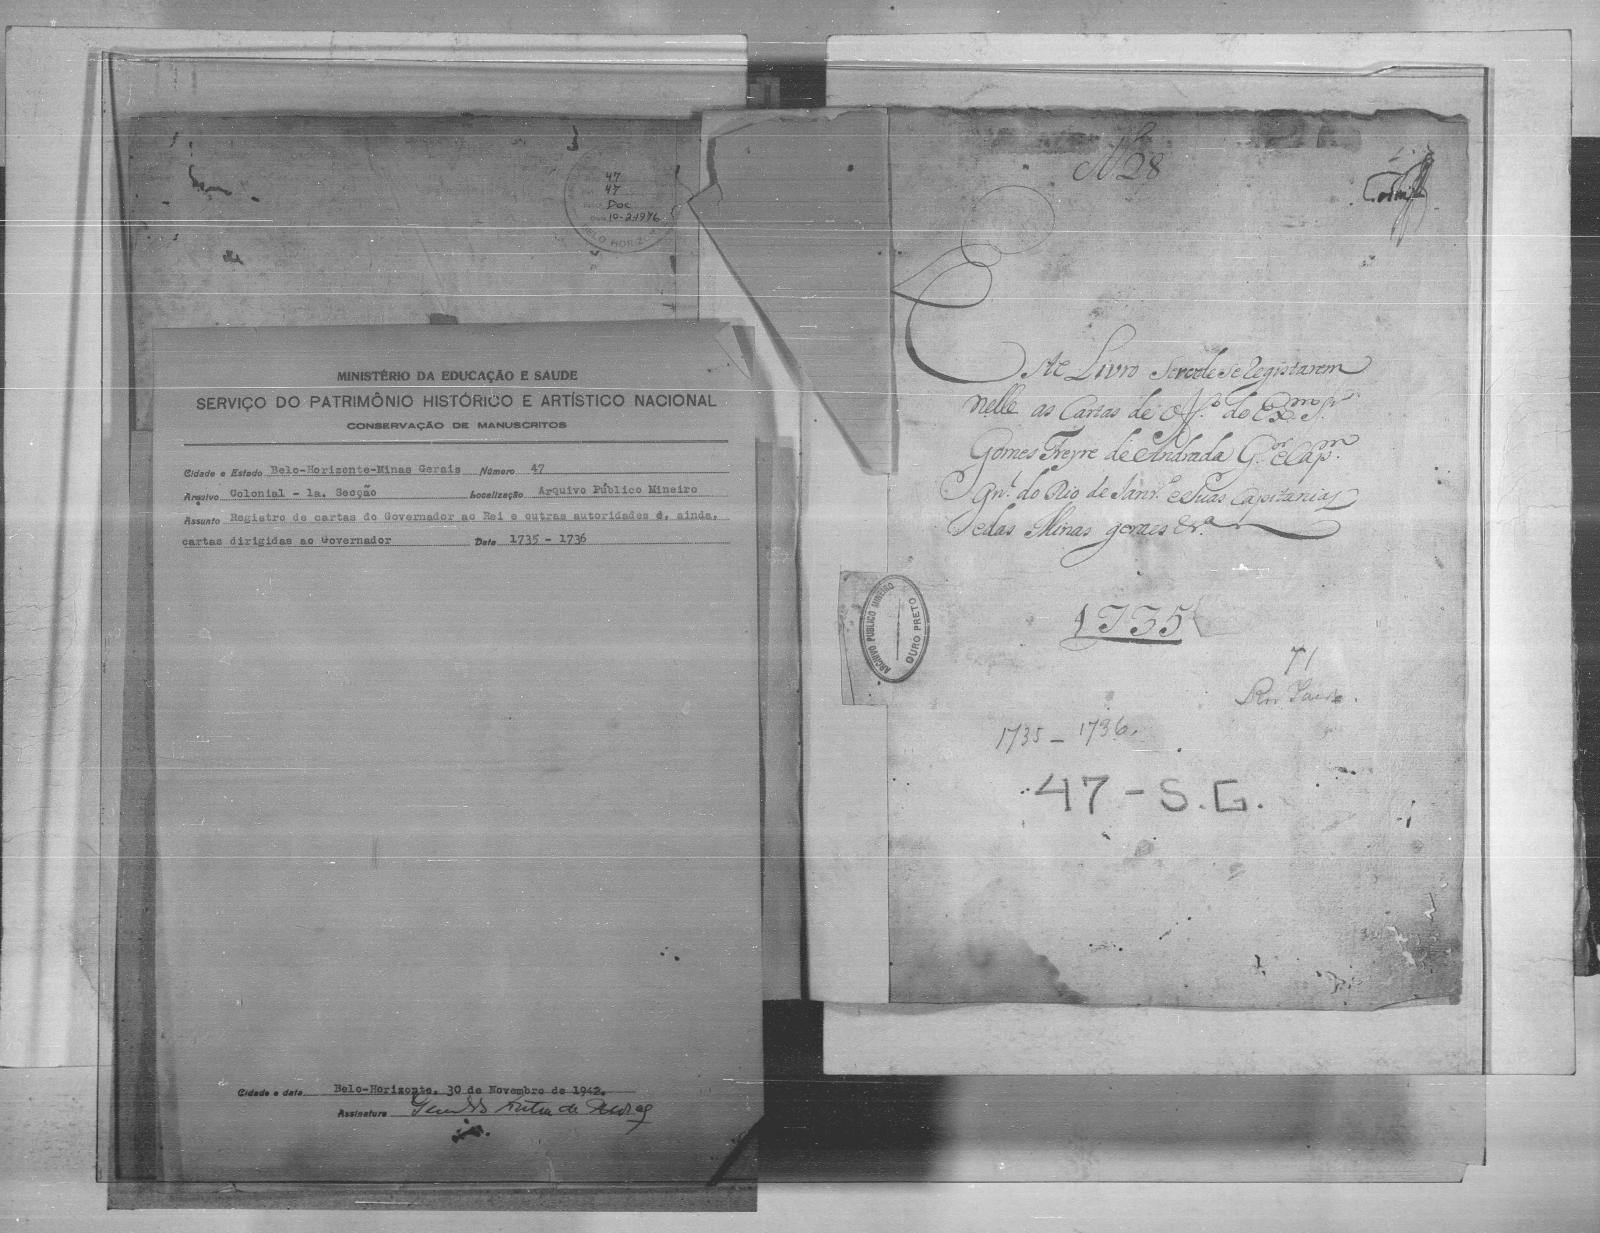 47
47
Doc
10-2-1976
BELO HORIZONTE
MINISTÉRIO DA EDUCAÇÃO E SAUDE
SERVIÇO DO PATRIMÔNIO HISTÓRICO E ARTÍSTICO NACIONAL
CONSERVAÇÃO DE MANUSCRITOS
Cidade e Estado Belo-Horizonte-Minas Gerais Número 47
Arquivo Colonial - 1a. Secção Localização Arquivo Público Mineiro
Assunto Registro de cartas do Governador ao Rei e outras autoridades e, ainda,
cartas dirigidas ao Governador Data 1735 - 1736
Cidade e data Belo-Horizonte, 30 de Novembro de 1942.
Assinatura
Nº 28
Este Livro Serve de Se Registarem
nelle as Cartas de off.º do Exmo Sr
Gomes Freyre de Andrada G.or e Cap.m
Gn.l do Rio de Janr.º e Suas Capitanias
e das Minas geraes &ra
1735
ARCHIVO PUBLICO MINEIRO
OURO PRETO
71
1735 - 1736.
47 - S.G.